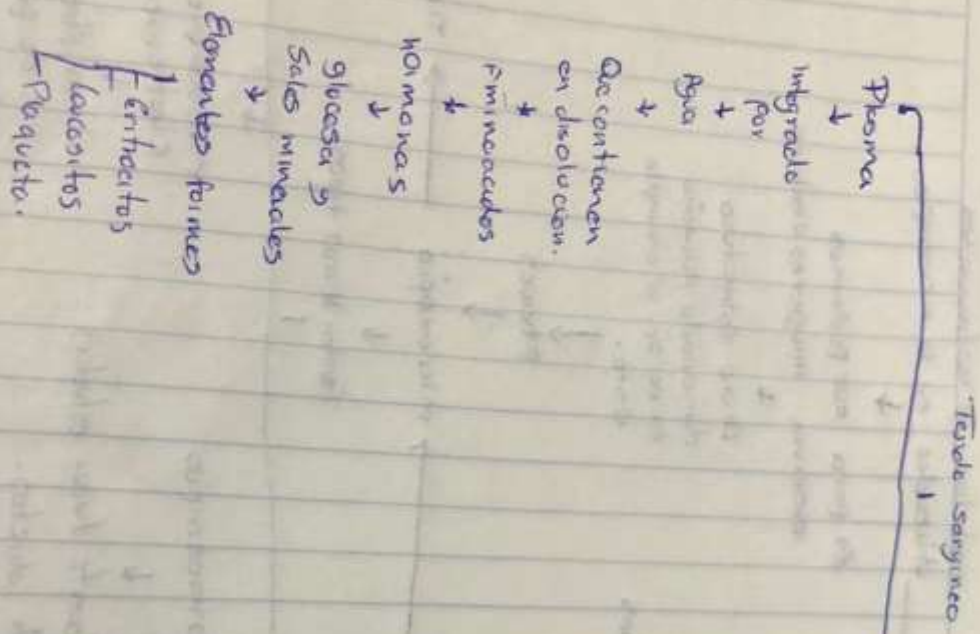 Tejido sanguineo
Plasma
↓
Integrado
por
↓
Agua
↓
Que contienen
en disolucion.
↓
Aminoacidos
↓
hormonas
↓
glucosa y
Sales minerales
↓
Elementos formes
- Eritrocitos
leucositos
- Plaqueta.